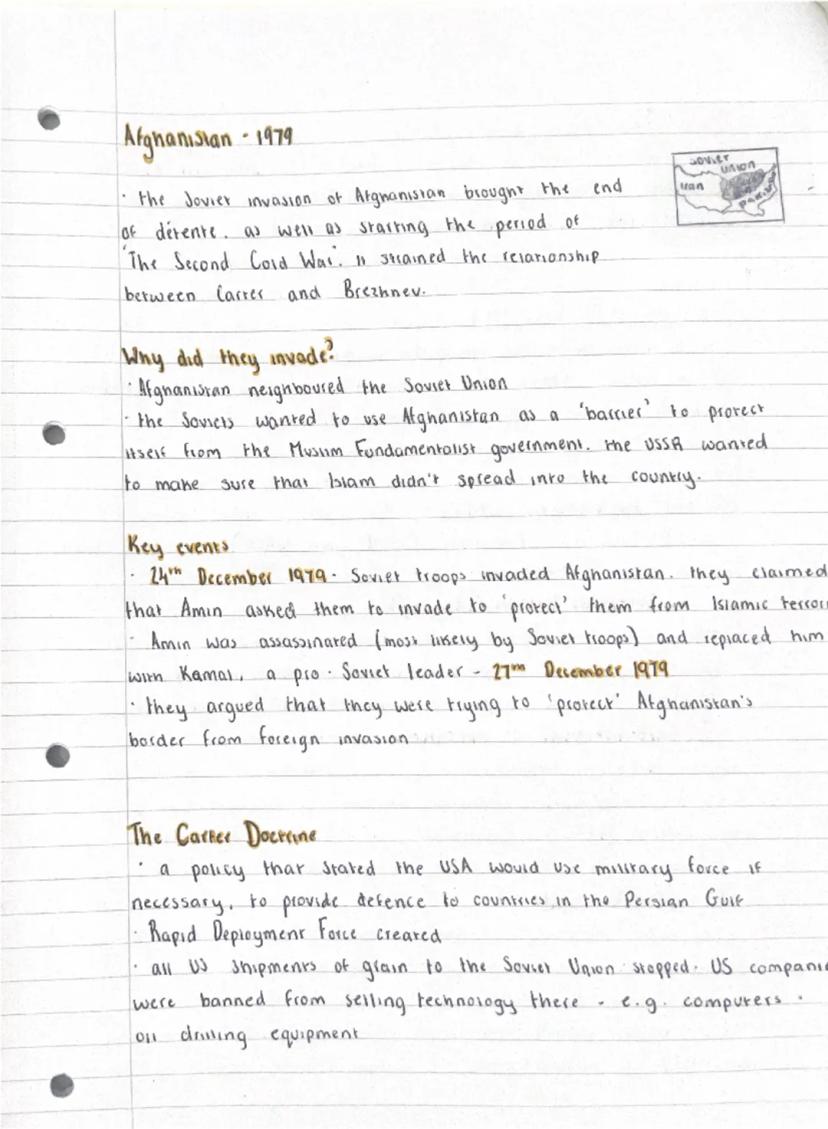 Afghanistan - 1979
Soviet
Union
Iran
Pakistan
· the Soviet invasion of Afghanistan brought the end
of détente. as well as starting the period of
'The Second Cold War'. It strained the relationship
between Carter and Brezhnev.
Why did they invade?
· Afghanistan neighboured the Soviet Union
· the Soviets wanted to use Afghanistan as a 'barrier' to protect
itself from the Muslim Fundamentalist government. the USSR wanted
to make sure that Islam didn't spread into the country.
Key events
· 24th December 1979 - Soviet troops invaded Afghanistan. they claimed
that Amin asked them to invade to 'protect' them from Islamic terror
· Amin was assassinated (most likely by Soviet troops) and replaced him
with Kamal, a pro - Soviet leader - 27th December 1979
· they argued that they were trying to 'protect' Afghanistan's
border from foreign invasion
The Carter Doctrine
· a policy that stated the USA would use military force if
necessary, to provide defence to countries in the Persian Gulf
· Rapid Deployment Force created
· all US shipments of grain to the Soviet Union stopped. US compani
were banned from selling technology there - e.g. computers ·
oil drilling equipment